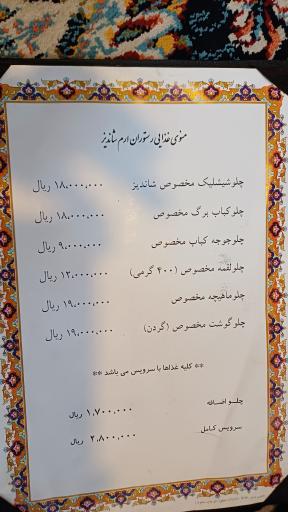 منوی غذایی رستوران ارم شاندیز
چلوشیشلیک مخصوص شاندیز ۱۸،۰۰۰،۰۰۰ ریال
چلوکباب برگ مخصوص ۱۸،۰۰۰،۰۰۰ ریال
چلوجوجه کباب مخصوص ۹،۰۰۰،۰۰۰ ریال
چلولقمه مخصوص (۴۰۰ گرمی) ۱۲،۰۰۰،۰۰۰ ریال
چلوماهیچه مخصوص ۱۹،۰۰۰،۰۰۰ ریال
چلوگوشت مخصوص (گردن) ۱۹،۰۰۰,۰۰۰ ریال
** کلیه غذاها با سرویس می باشد **
چلو اضافه ۱,۷۰۰,۰۰۰ ریال
سرویس کامل ۲,۸۰۰,۰۰۰ ریال